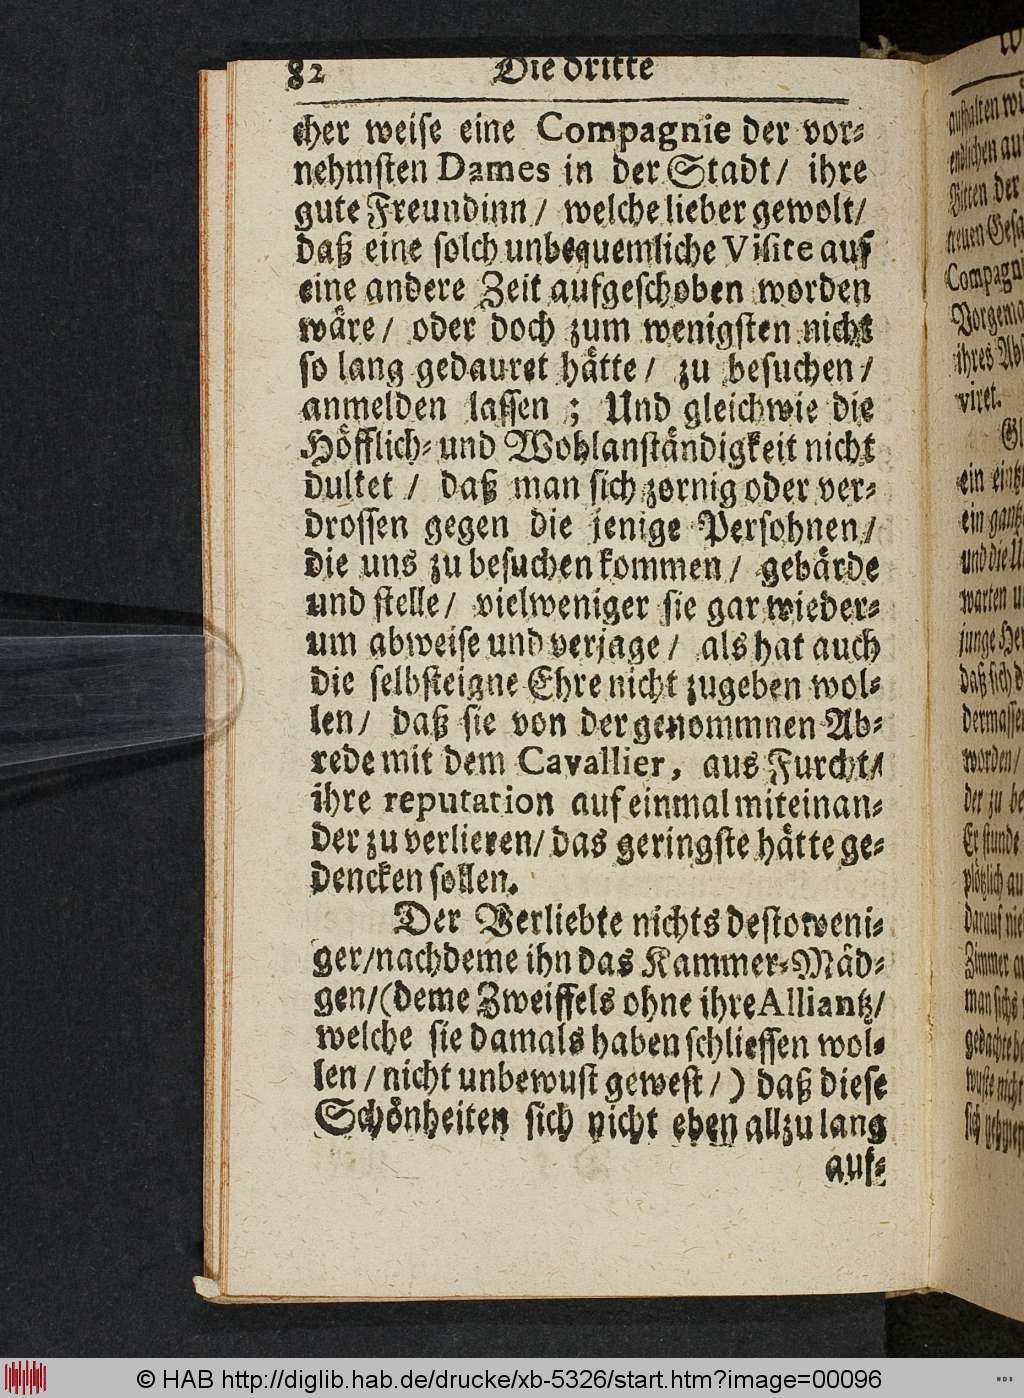 82 Die dritte
cher weise eine Compagnie der vor⸗
nehmsten Dames in der Stadt / ihre
gute Freundinn / welche lieber gewolt /
daß eine solch unbequemliche Visite auf
eine andere Zeit aufgeschoben worden
wäre / oder doch zum wenigsten nicht
so lang gedauret hätte / zu besuchen /
anmelden lassen ; Und gleichwie die
Höfflich⸗ und Wohlanständigkeit nicht
dultet / daß man sich zornig oder ver⸗
drossen gegen die jenige Persohnen /
die uns zu besuchen kommen / gebärde
und stelle / vielweniger sie gar wieder⸗
um abweise und verjage / als hat auch
die selbsteigne Ehre nicht zugeben wol⸗
len / daß sie von der genommnen Ab⸗
rede mit dem Cavallier, aus Furcht /
ihre reputation auf einmal miteinan⸗
der zu verlieren / das geringste hätte ge⸗
dencken sollen.
Der Verliebte nichts destoweni⸗
ger / nachdeme ihn das Kammer⸗Mäd⸗
gen / (deme Zweiffels ohne ihre Alliantz /
welche sie damals haben schliessen wol⸗
len / nicht unbewust gewest / ) daß diese
Schönheiten sich nicht eben allzu lang
auf⸗
aufhalten
endlichen
Bitten der
treuen
Vorgem
ihres
viret.
Gl
ein
ein
und die
warten
junge
daß sich
dermassen
worden /
der zu be
Er stunde
plötzlich
darauf
Zimmer
man sichs
gedachte
wuste nicht
© HAB http://diglib.hab.de/drucke/xb-5326/start.htm?image=00096